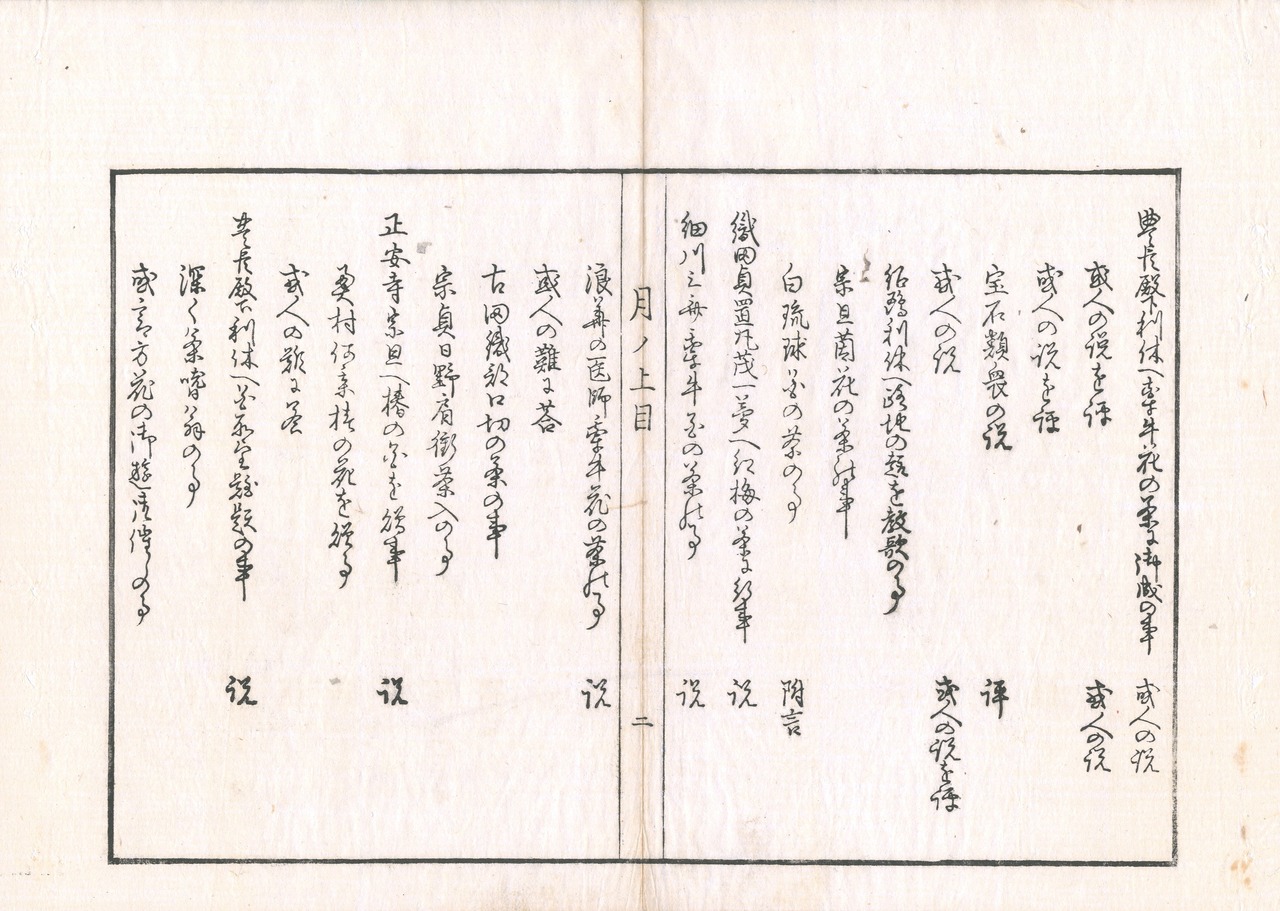 豊臣殿下利休へ牽牛花の茶に御成の事 或人の説
或人の説を評 或人の説
或人の説を評
宝石類畏の説 評
或人の説 或人の説を評
紹鴎利休へ路地の趣を教歌の事
宗旦菌花の茶の事
白琉球花の茶の事 附言
織田貞置丸茂一夢へ紅梅の茶に行事 説
細川三斎牽牛花の茶の事 説
月ノ上目 二
浪華の医師牽牛花の茶の事 説
或人の難に答
古田織部口切の茶の事
宗貞日野肩衝茶入の事
正安寺宗旦へ椿の花を贈事 説
村何某椿の花を贈事
或人の難に答
豊臣殿下利休へ花所望難題の事 説
深く茶嗜翁の事
或言方花の御遊御催しの事